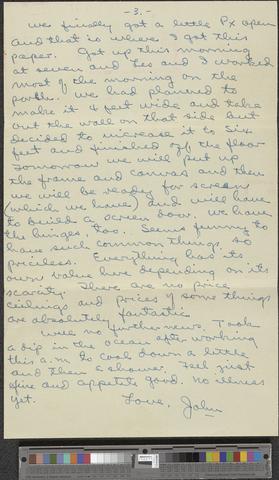 - 3. -
We finally got a little Px open
and that is where I got this
paper. Got up this morning
at seven and Les and I worked
most of the morning on the
porch. We had planned to
make it 4 feet wide and take
out the wall on that side but
decided to increase it to six
feet and finished off the floor
Tomorrow we will put up
the frame and canvas and then
we will be ready for screen
(which we have) and will have
to build a screen door. We have
the hinges, too. Seems funny to
have such common things, so
priceless. Everything has its
own value here depending on its
scarcity. There are no price
ceilings and prices of some things
are absolutely fantastic
Well no further news. Took
a dip in the ocean after working
this a.m. to cool down a little
and then a shower. Feel just
fine and appetite good. No illness
yet.
Love, John